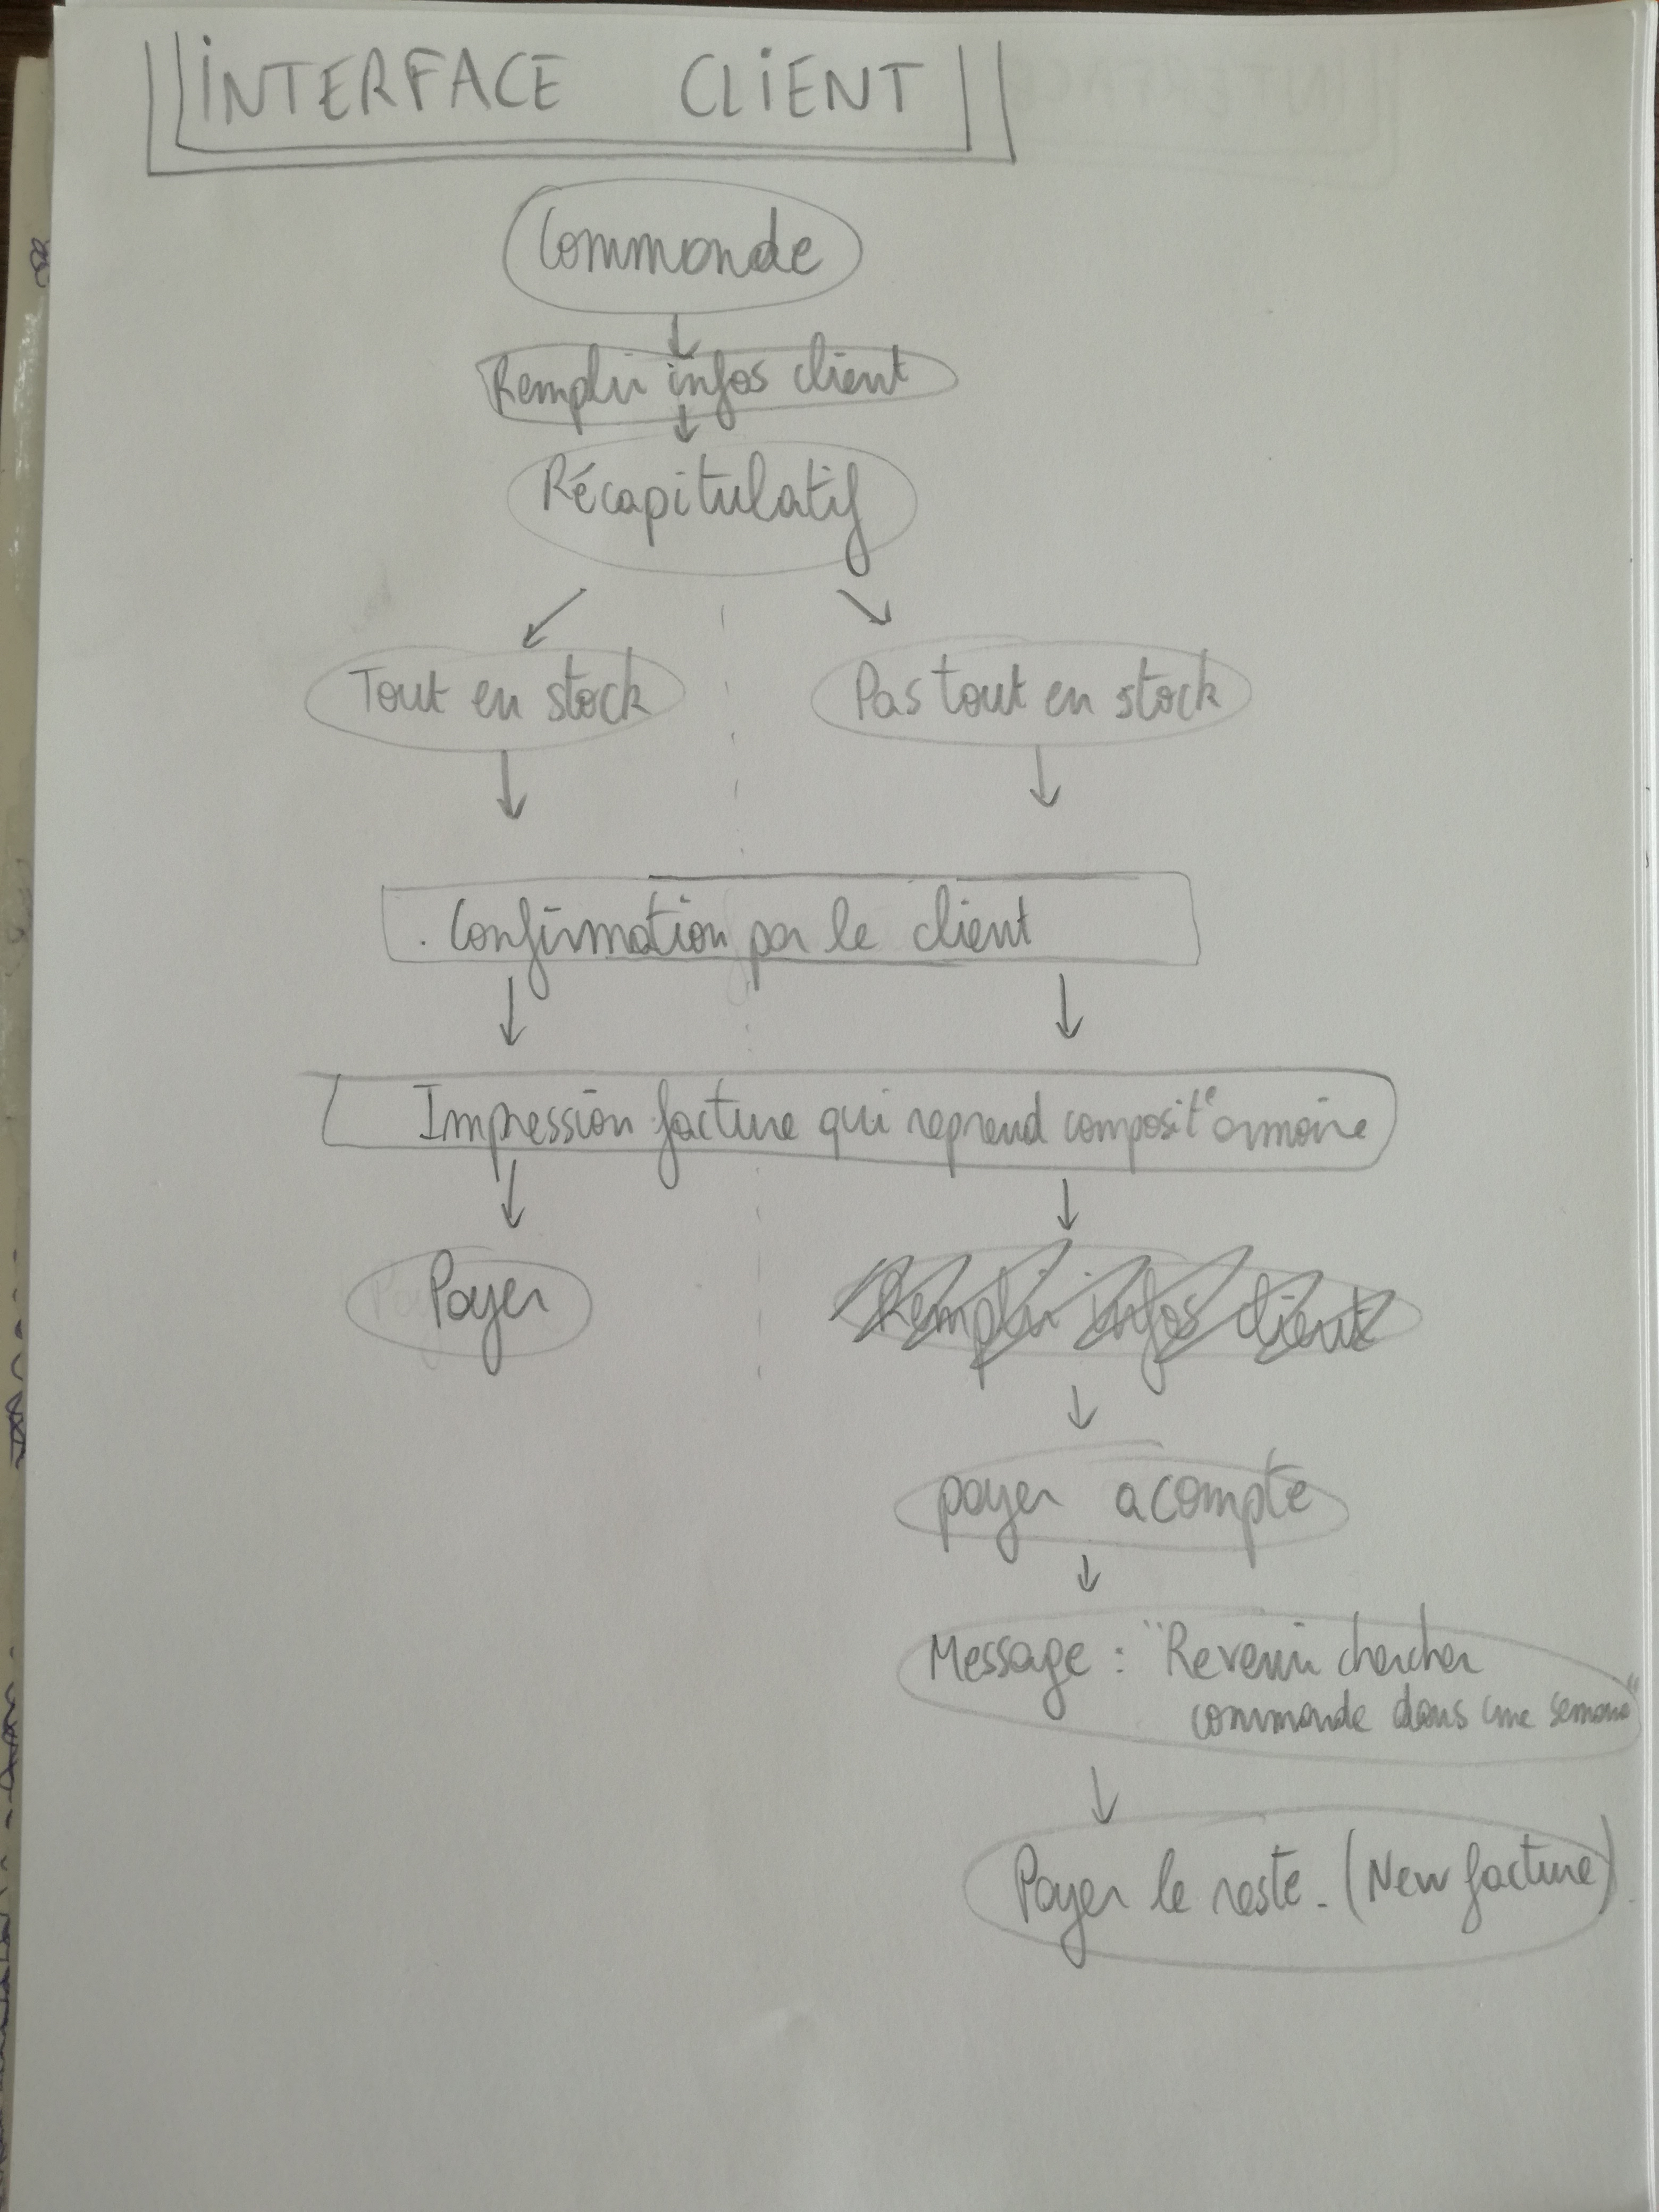 INTERFACE CLIENT
Commande
Remplir infos client
Récapitulatif
Tout en stock
Pas tout en stock
. Confirmation par le client
Impression facture qui reprend composit° armoire
Payer
Remplir infos client
payer acompte
Message : "Revenir chercher
commande dans une semaine"
Payer le reste. (New facture)